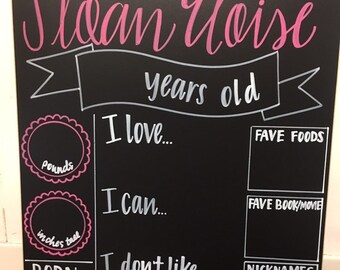 Sloan Eloise
years old
I love...
FAVE FOODS
pounds
I can...
FAVE BOOK/MOVIE
inches tall
I don't like
NICKNAMES
BORN